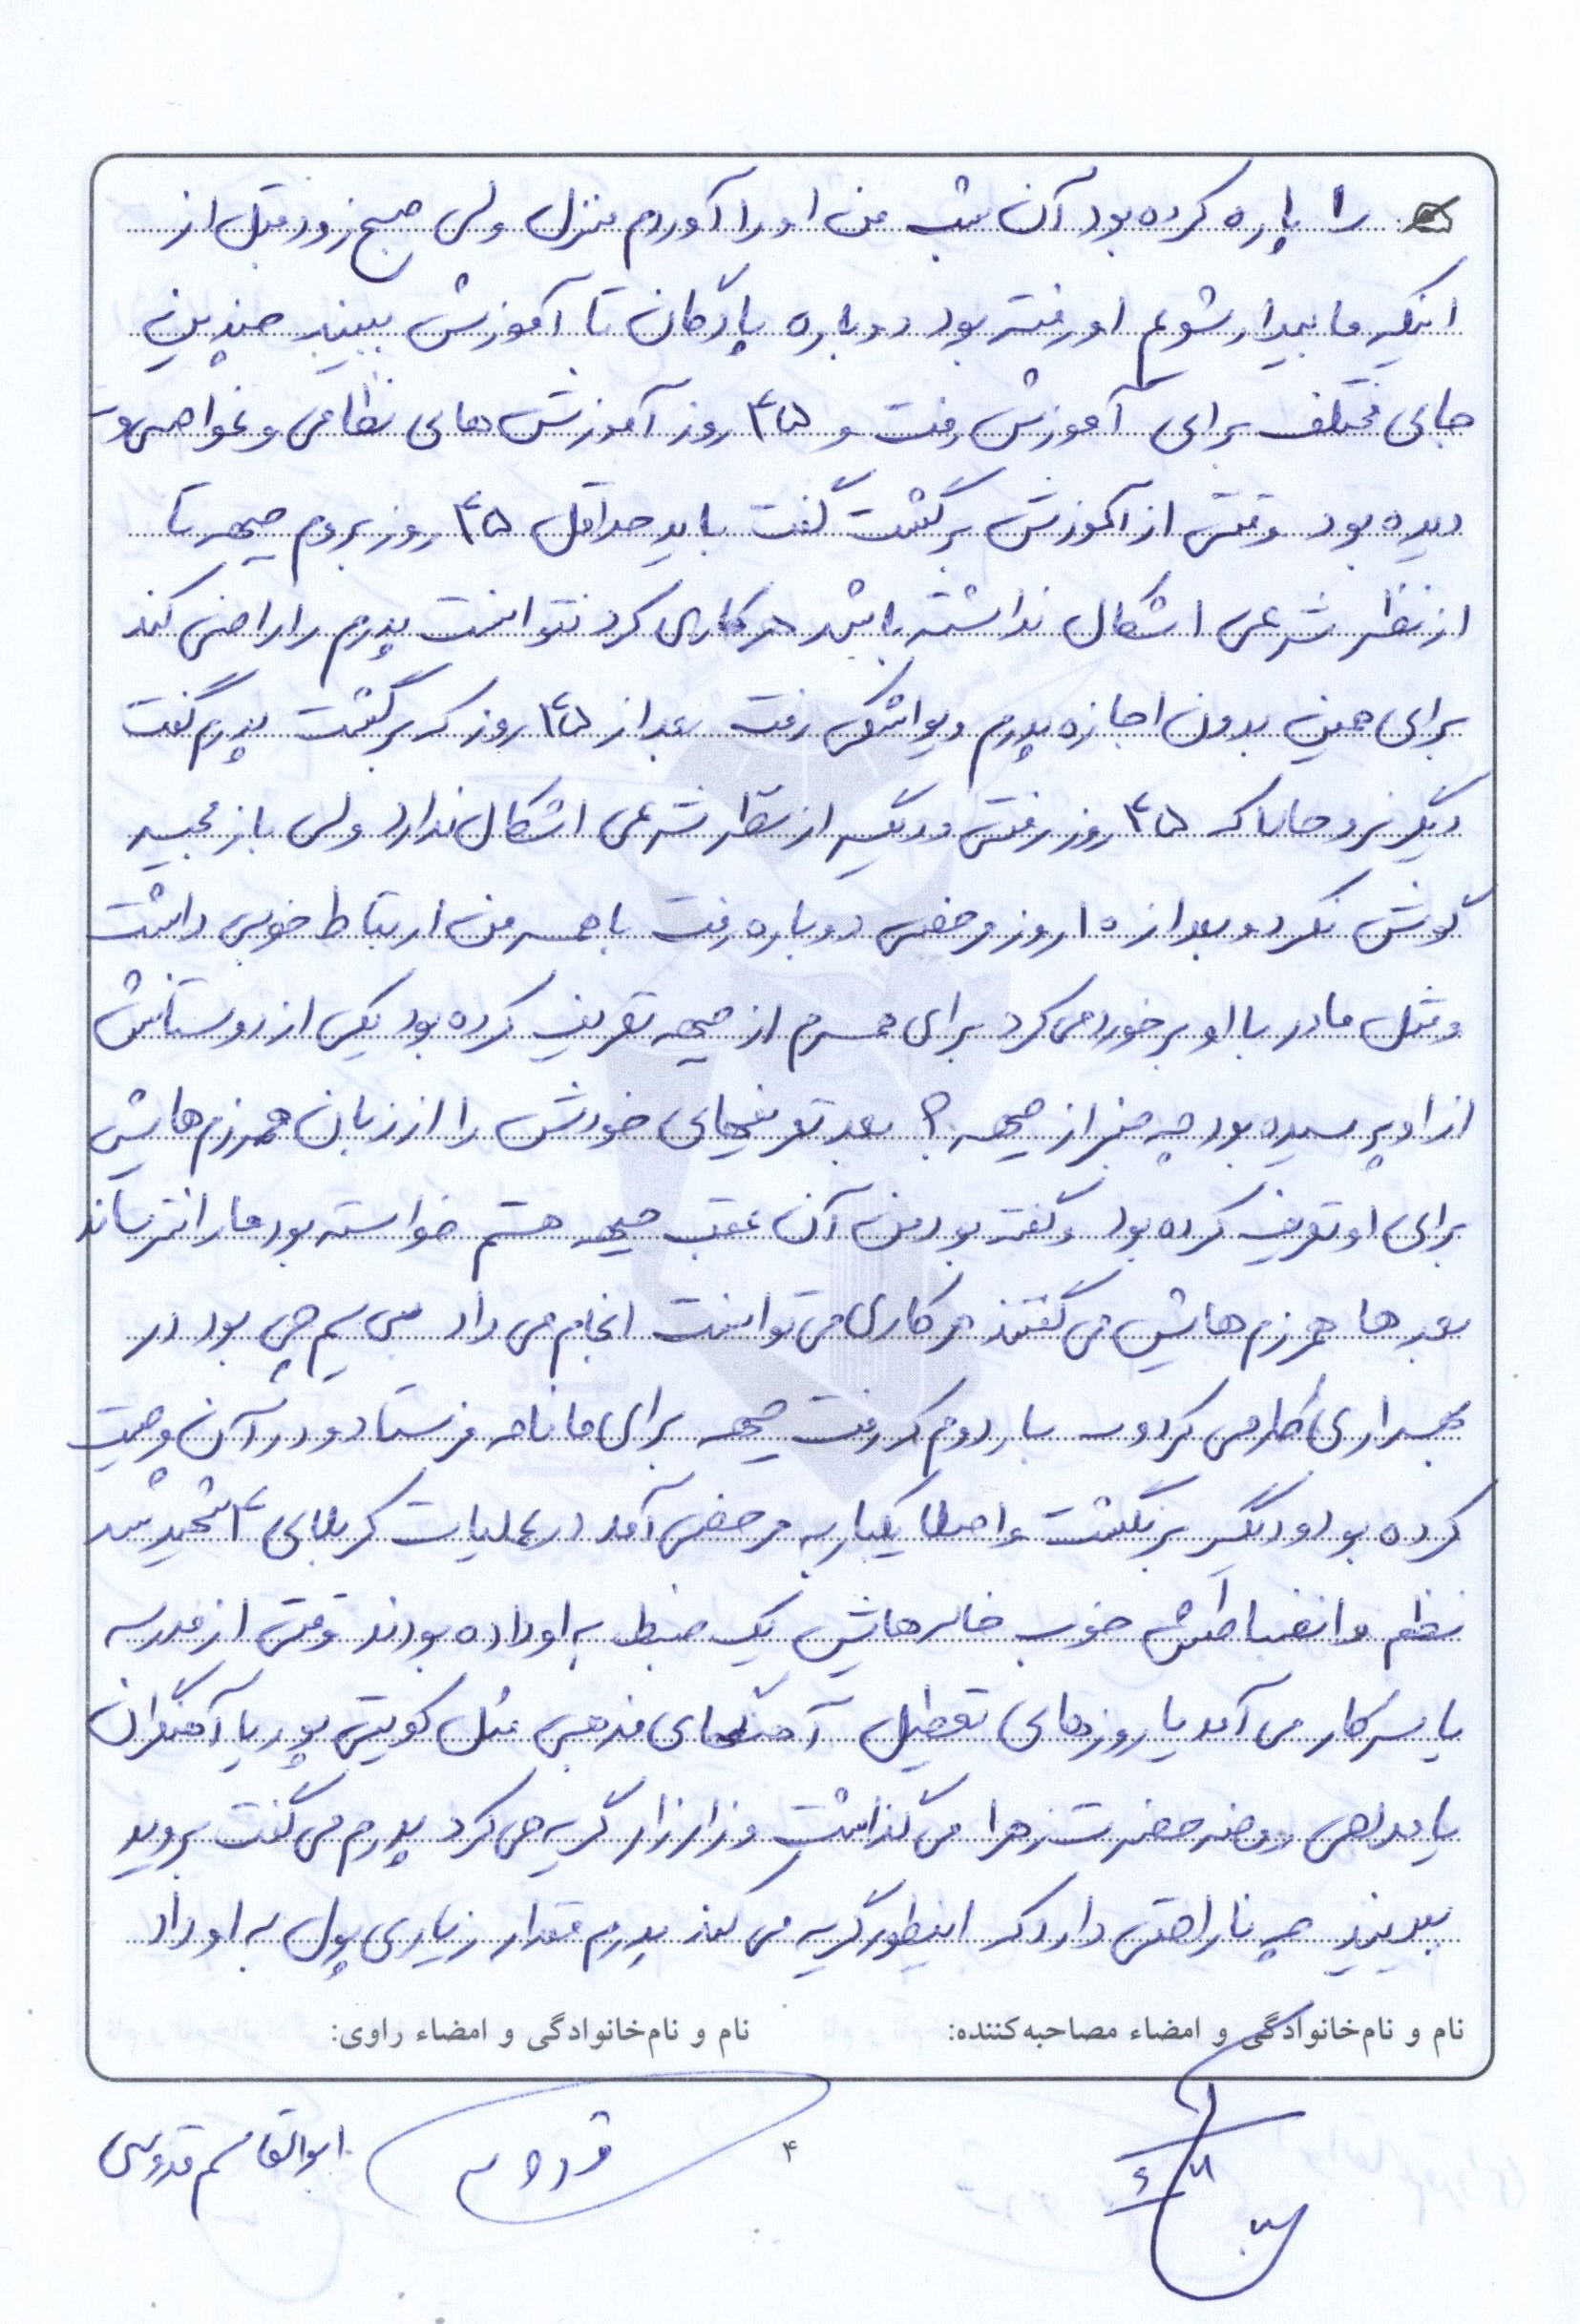 را پاره کرده بود آن شب من او را آوردم منزل ولی صبح زود قبل از
اینکه ما بیدار شویم او رفته بود دوباره پادگان تا آموزش ببیند چندین
جای مختلف برای آموزش رفت و ۴۵ روز آموزش های نظامی و غواصی و
دیده بود وقتی از آموزش برگشت گفت باید حداقل ۴۵ روز بروم جبهه تا
از نظر شرعی اشکال نداشته باشد هر کاری کرد نتوانست پدرم را راضی کند
برای همین بدون اجازه پدرم ویواشکی رفت بعد از ۴۵ روز که برگشت پدرم گفت
دیگر نرو حالا که ۴۵ روز رفتی و دیگر از نظر شرعی اشکال ندارد ولی باز مجید
گوش نکرد و بعد از ۱۵ روز مرخصی دوباره رفت با همسر من ارتباط خوبی داشت
و مثل مادر با او برخورد می کرد برای همسرم از جبهه تعریف کرده بود یکی از دوستانش
از او پرسیده بود چه خبر از جبهه ؟ بعد تعریفهای خودش را از زبان همرزم هایش
برای او تعریف کرده بود و گفته بود من آن عقب جبهه هستم خواسته بود ما را نترساند
بعد ها همرزم هایش می گفتند هر کاری می توانست انجام می داد بی سیم چی بود در
بهداری کار می کرد و بار دوم که رفت جبهه برای ما نامه فرستاد و در آن وصیت
کرده بود و دیگر برنگشت و اصلا یکبار به مرخصی آمد در عملیات کربلای ۴ شهید شد
نظم و انضباطش خوب خاله هایش یک ضبط به او داده بودند وقتی از مدرسه
یا سر کار می آمد یا روزهای تعطیل آهنگهای مذهبی مثل کویتی پور یا آهنگران
یا مداحی روضه حضرت زهرا می گذاشت و زار زار گریه می کرد پدرم می گفت بروید
ببینید چه ناراحتی دارد که اینطور گریه می کند پدرم مقدار زیادی پول به او داد
نام و نام‌خانوادگی و امضاء مصاحبه‌کننده: نام و نام‌خانوادگی و امضاء راوی:
۴ قدوسی ابوالقاسم قدوسی